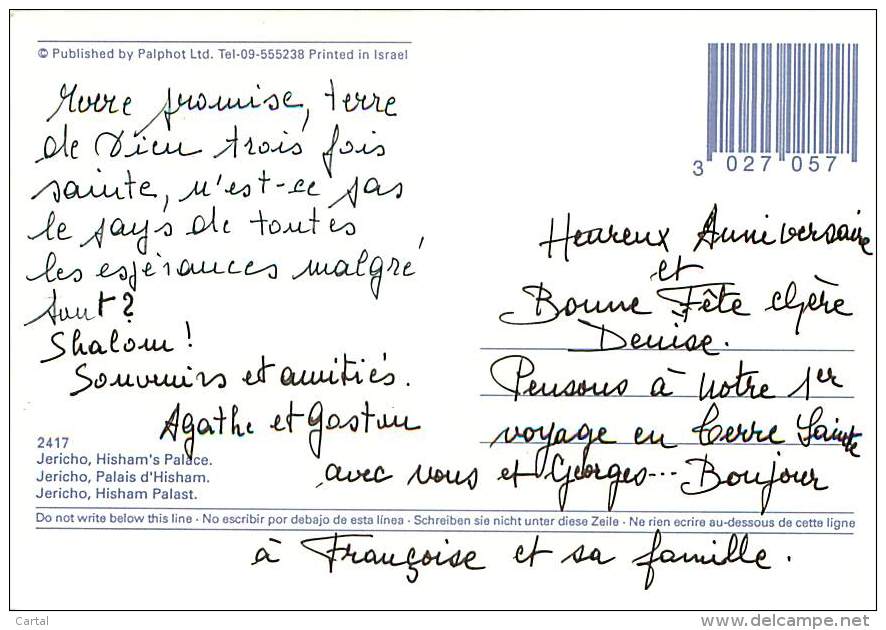 © Published by Palphot Ltd. Tel-09-555238 Printed in Israel
promise, terre
de Dieu trois fois
sainte, n'est-ce pas
le pays de toutes
les espérances malgré
tout?
Shalom!
Souvenirs et amitiés.
Agathe et Gaston
3 027 057
Heureux Anniversaire
et
Bonne Fête chère
Denise.
Pensons à notre 1er
voyage en Terre Sainte
avec vous et Georges... Bonjour
à Françoise et sa famille.
2417
Jericho, Hisham's Palace.
Jericho, Palais d'Hisham.
Jericho, Hisham Palast.
Do not write below this line · No escribir por debajo de esta línea · Schreiben sie nicht unter diese Zeile · Ne rien ecrire au-dessous de cette ligne
Cartal
www.delcampe.net